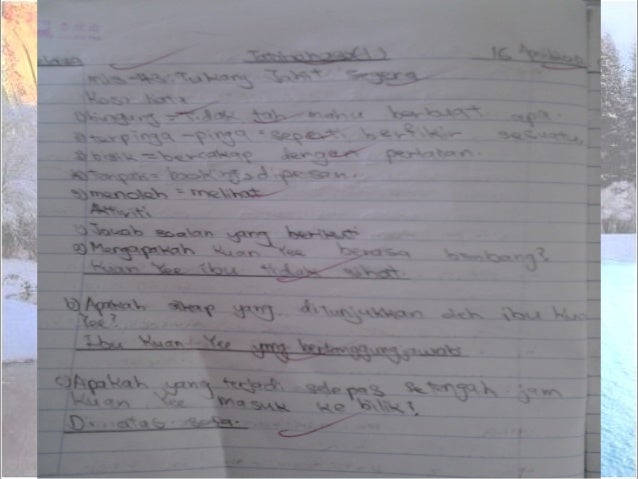 16
m/s = 43: Tukang Jahit Segera
Kosa kata
1) bingung = tidak tah mahu berbuat apa.
2) terpinga-pinga = seperti berfikir sesuatu.
3) bisik = bercakap dengan perlahan.
4) = booking, dipesan.
5) menoleh = melihat
Aktiviti
1) Jawab soalan yang berikut
a) Mengapakah Kuan Yee berasa bimbang?
Kuan Yee ibu tidak sihat.
b) Apakah sikap yang ditunjukkan oleh ibu Kuan
Yee?
Ibu Kuan Yee yang bertanggungjawab
c) Apakah yang terjadi selepas setengah jam
Kuan Yee masuk ke bilik?
D... atas